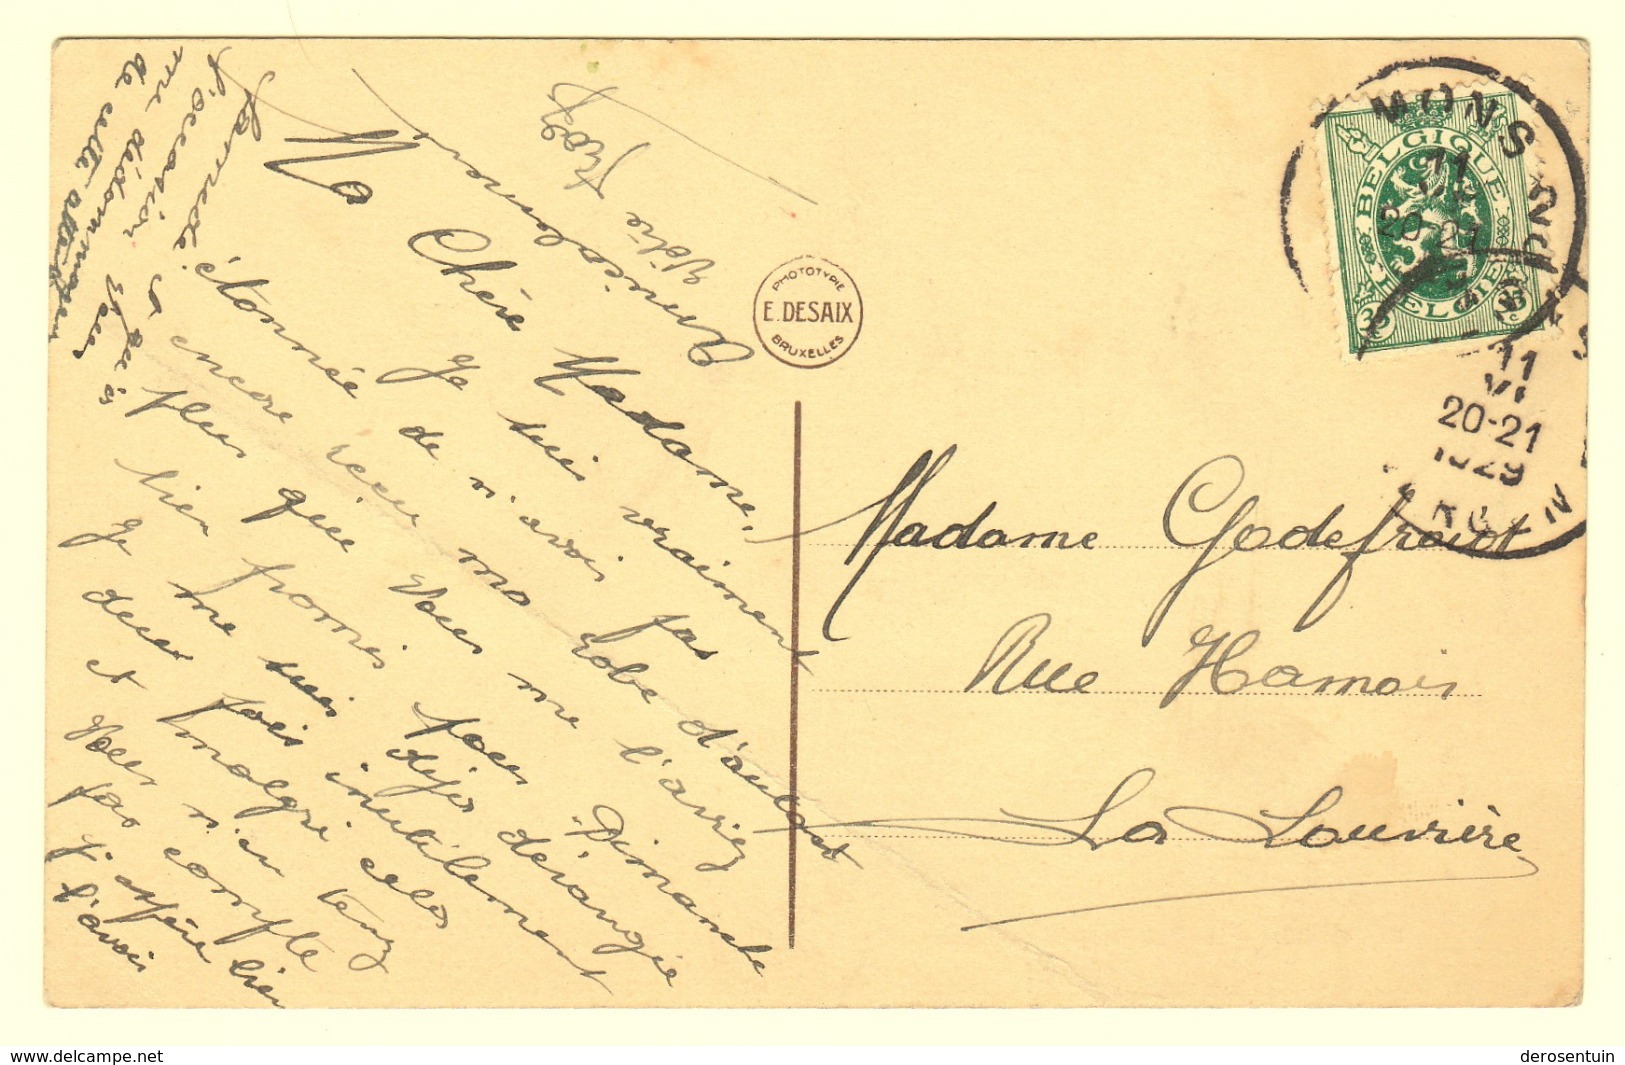 Ma Chère Madame,
Je suis vraiment
étonnée de n'avoir pas
encore reçu ma robe d'autant
plus que Vous me l'aviez
bien promis pour Dimanche
Je me suis déjà dérangée
deux fois inutilement
et malgré cela
Vous n'en tenez
pas compte
j'espère bien
l'avoir
Samedi
l'occasion
me dédommager
de cette
Amicalement
Vôtre
PHOTOTYPIE
E. DESAIX
BRUXELLES
MONS
11
20-21
BELGIQUE
BELGIË
35
35
c
11
VI
20-21
1929
Madame Godefroidt
Rue Hamoir
La Louvière
www.delcampe.net
derosentuin